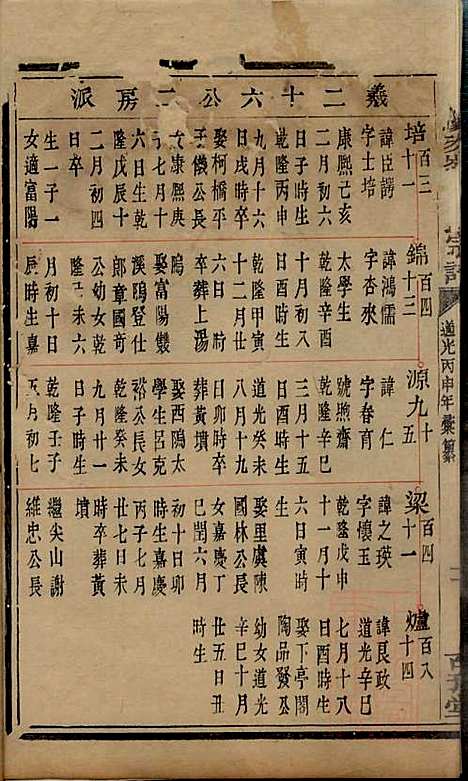 羲二十六公二房派
培百三十一
諱臣謌
字士培
康熙己亥
二月初六
日子時生
乾隆丙申
九月十六
日戌時卒
娶柯橋平
王儀公長
女康熙庚
子七月十
六日生乾
隆戊辰十
二月初四
日卒
生一子一
女適富陽
錦百四十三
諱鴻儒
字杏來
太學生
乾隆辛酉
十月初八
日酉時生
乾隆甲寅
十二月廿
卒葬上湯
塢
娶富陽
溪鴟登仕
郎章國奇
公幼女乾
隆 未六
月初十日
辰時生嘉
源九十五
諱仁
字春育
號煦齋
乾隆辛丑
三月十五
日酉時生
道光癸未
八月十九
日卯時卒
葬黃墳
娶酉陽太
學生呂克
裕公長女
乾隆癸未
九月廿一
日子時生
乾隆壬子
五月初七
梁百四十一
諱之瑛
字懷玉
乾隆戊申
十一月十
六日寅時
生
娶里虞陳
國林公長
女嘉慶丁
巳閏六月
初十日卯
時生嘉慶
丙子七月
廿七日未
時卒葬黃
墳
繼尖山謝
維忠公長
爐百八十四
諱良政
道光辛巳
七月十八
日酉時生
娶下亭閣
陶品發公
幼女道光
辛巳十月
廿五日丑
時生
道光丙申年彙纂